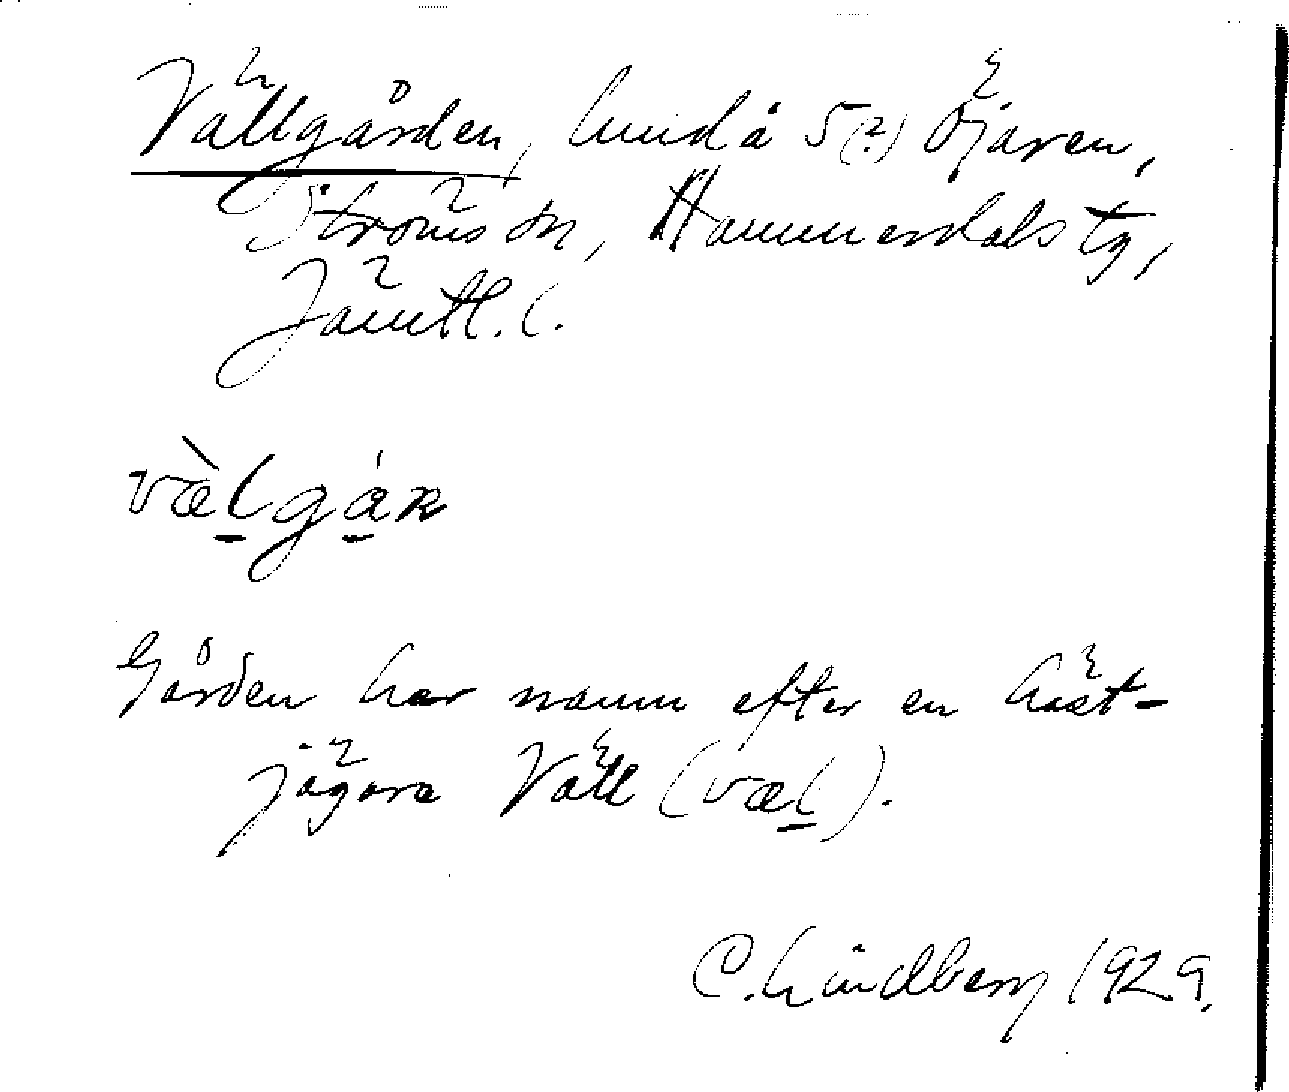 Vällgården, hmd å 5(?) Öjaren,
Ströms sn, Hammerdals tg,
Jämtl. l.
væ̀lgá̱ṉ
Gården har namn efter en häst-
jägare Väll (væl̲).
C. Lindberg 1929.